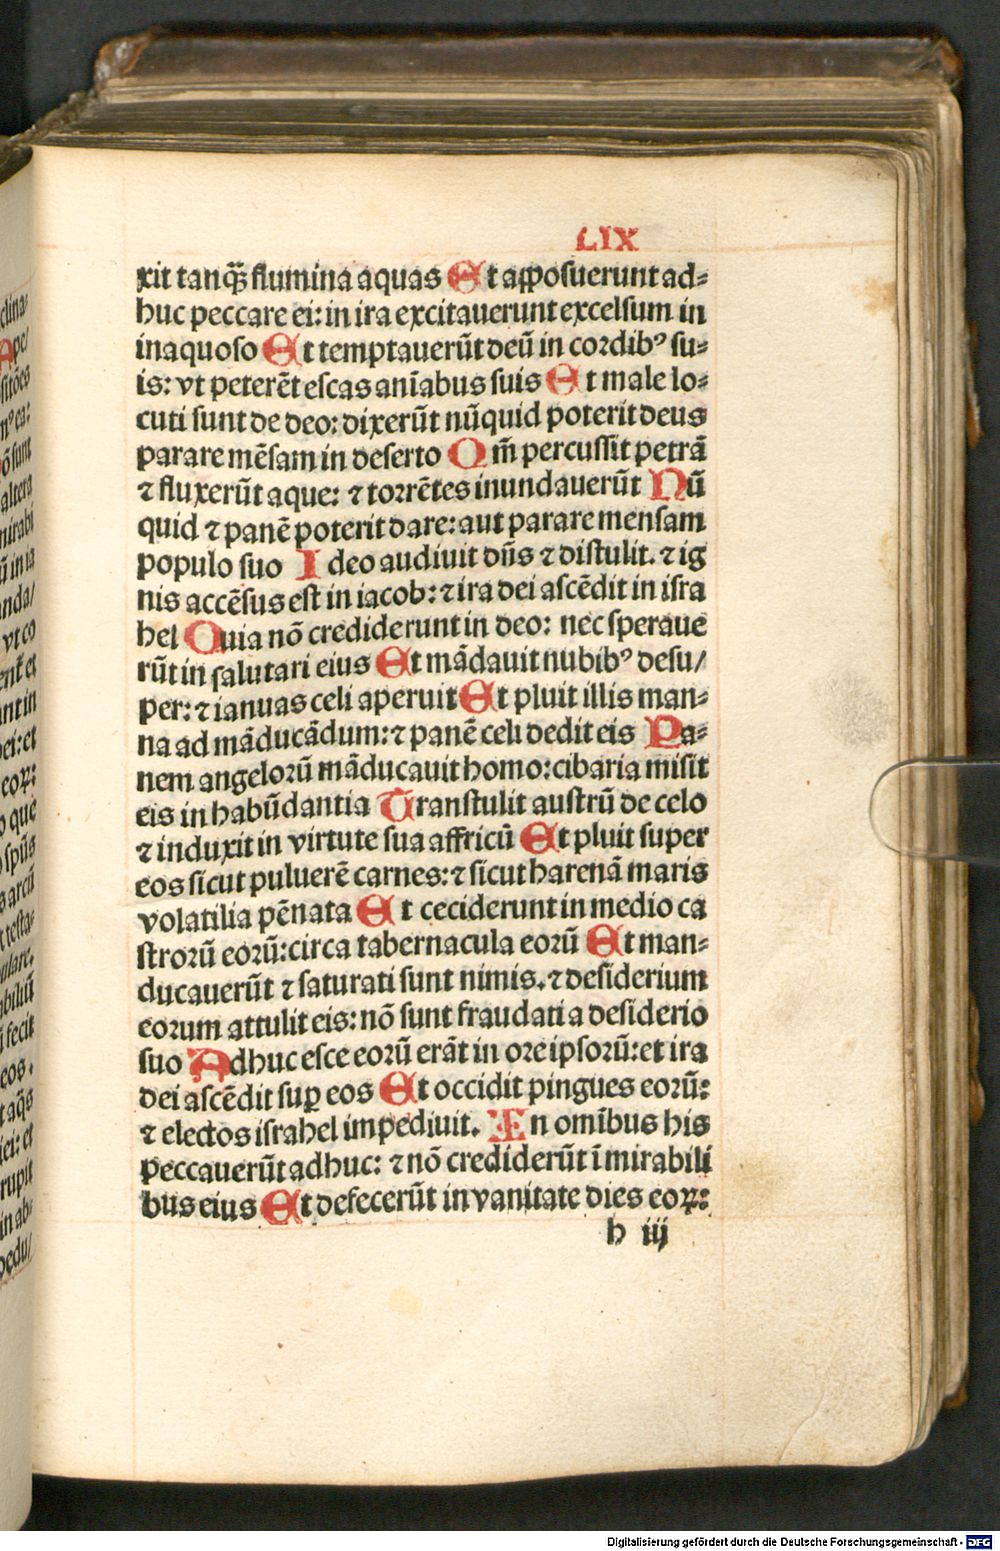 LIX
xit tanqȝ flumina aquas Et apposuerunt ad-
huc peccare ei: in ira excitauerunt excelsum in
inaquoso Et temptauerūt deū in cordibꝰ su-
is: vt peterēt escas anīabus suis Et male lo-
cuti sunt de deo: dixerūt nūquid poterit deus
parare mēsam in deserto Qm̄ percussit petrā
⁊ fluxerūt aque: ⁊ torrētes inundauerūt Nū
quid ⁊ panē poterit dare: aut parare mensam
populo suo Ideo audiuit dn̄s ⁊ distulit. ⁊ ig
nis accēsus est in iacob: ⁊ ira dei ascēdit in isra
hel Quia nō crediderunt in deo: nec speraue
rūt in salutari eius Et mādauit nubibꝰ desu/
per: ⁊ ianuas celi aperuit Et pluit illis man-
na ad māducādum: ⁊ panē celi dedit eis Pa-
nem angelorū māducauit homo: cibaria misit
eis in habūdantia Transtulit austrū de celo
⁊ induxit in virtute sua affricū Et pluit super
eos sicut puluerē carnes: ⁊ sicut harenā maris
volatilia pēnata Et ceciderunt in medio ca
strorū eorū: circa tabernacula eorū Et man-
ducauerūt ⁊ saturati sunt nimis. ⁊ desiderium
eorum attulit eis: nō sunt fraudati a desiderio
suo Adhuc esce eorū erāt in ore ipsorū: et ira
dei ascēdit suꝑ eos Et occidit pingues eorū:
⁊ electos israhel impediuit. In omībus his
peccauerūt adhuc: ⁊ nō crediderūt ī mirabili
bus eius Et defecerūt in vanitate dies eoꝝ:
h iij
Digitalisierung gefördert durch die Deutsche Forschungsgemeinschaft - DFG